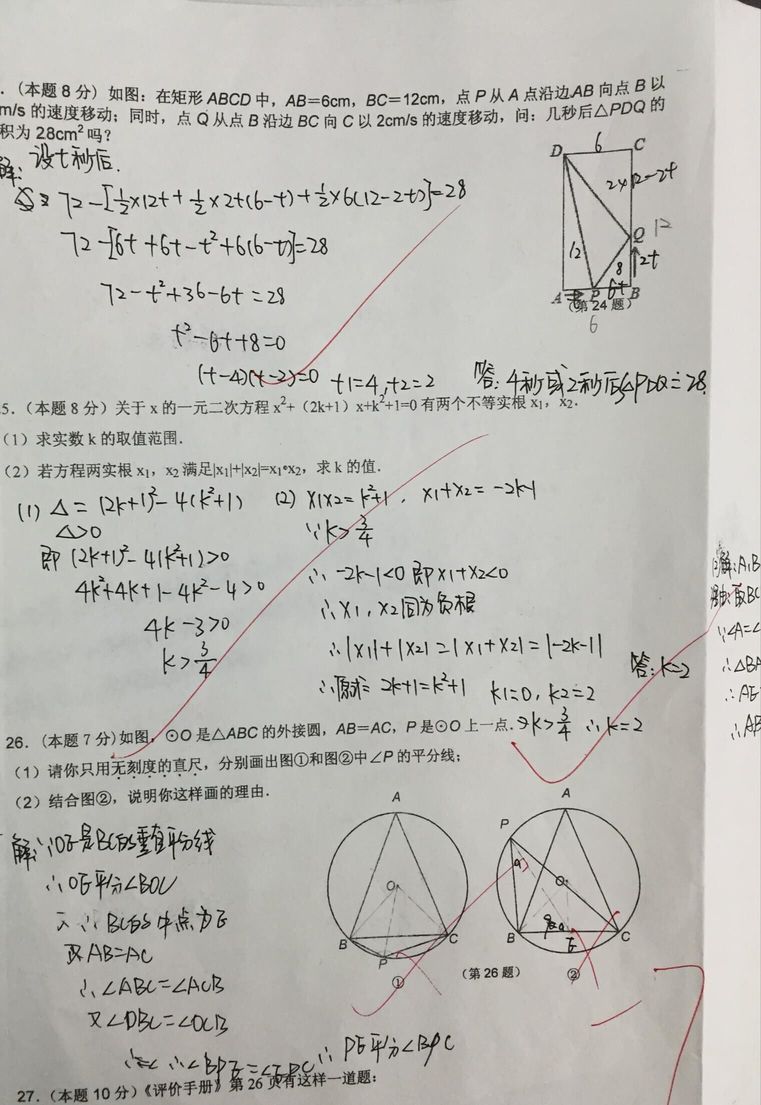 .(本题8分) 如图:在矩形ABCD中,AB=6cm,BC=12cm,点P从A点沿边AB向点B以
m/s的速度移动;同时,点Q从点B沿边BC向C以2cm/s的速度移动,问:几秒后△PDQ的
积为28cm²吗?
解:设t秒后.
72-[½×12t+½×2t(6-t)+½×6(12-2t)]=28
72-[6t+6t-t²+6(6-t)]=28
72-t²+36-6t=28
t²-6t+8=0
(t-4)(t-2)=0 t1=4,t2=2 答:4秒或2秒后△PDQ=28.
D 6 C
12-2t
Q 12
12
8
2t
A t P 6-t B
(第24题)
6
5.(本题8分)关于x的一元二次方程x²+(2k+1)x+k²+1=0有两个不等实根x₁,x₂.
(1)求实数k的取值范围.
(2)若方程两实根x₁,x₂满足|x₁|+|x₂|=x₁•x₂,求k的值.
(1) △=(2k+1)²-4(k²+1)
△>0
即(2k+1)²-4(k²+1)>0
4k²+4k+1-4k²-4>0
4k-3>0
k>3/4
(2) x1x2=k²+1, x1+x2=-2k-1
∵k>3/4
∴-2k-1<0 即x1+x2<0
∴x1,x2同为负根
∴|x1|+|x2|=|x1+x2|=|-2k-1|
∴原式=2k+1=k²+1 k1=0,k2=2
∵k>3/4 ∴k=2
答:k=2
26.(本题7分)如图,⊙O是△ABC的外接圆,AB=AC,P是⊙O上一点.
(1)请你只用无刻度的直尺,分别画出图①和图②中∠P的平分线;
(2)结合图②,说明你这样画的理由.
解:∵OE是BC的垂直平分线
∴OE平分∠BOC
又∵BC的中点为E
又AB=AC
∴∠ABC=∠ACB
又∠OBC=∠OCB
∴∠BPE=∠EPC ∴PE平分∠BPC
A
O
B C
P
①
(第26题)
A
P
O
B E C
②
27.(本题10分)《评价手册》第26页有这样一道题:
∵∠A=∠
∴△BA
∴AE
∴AB